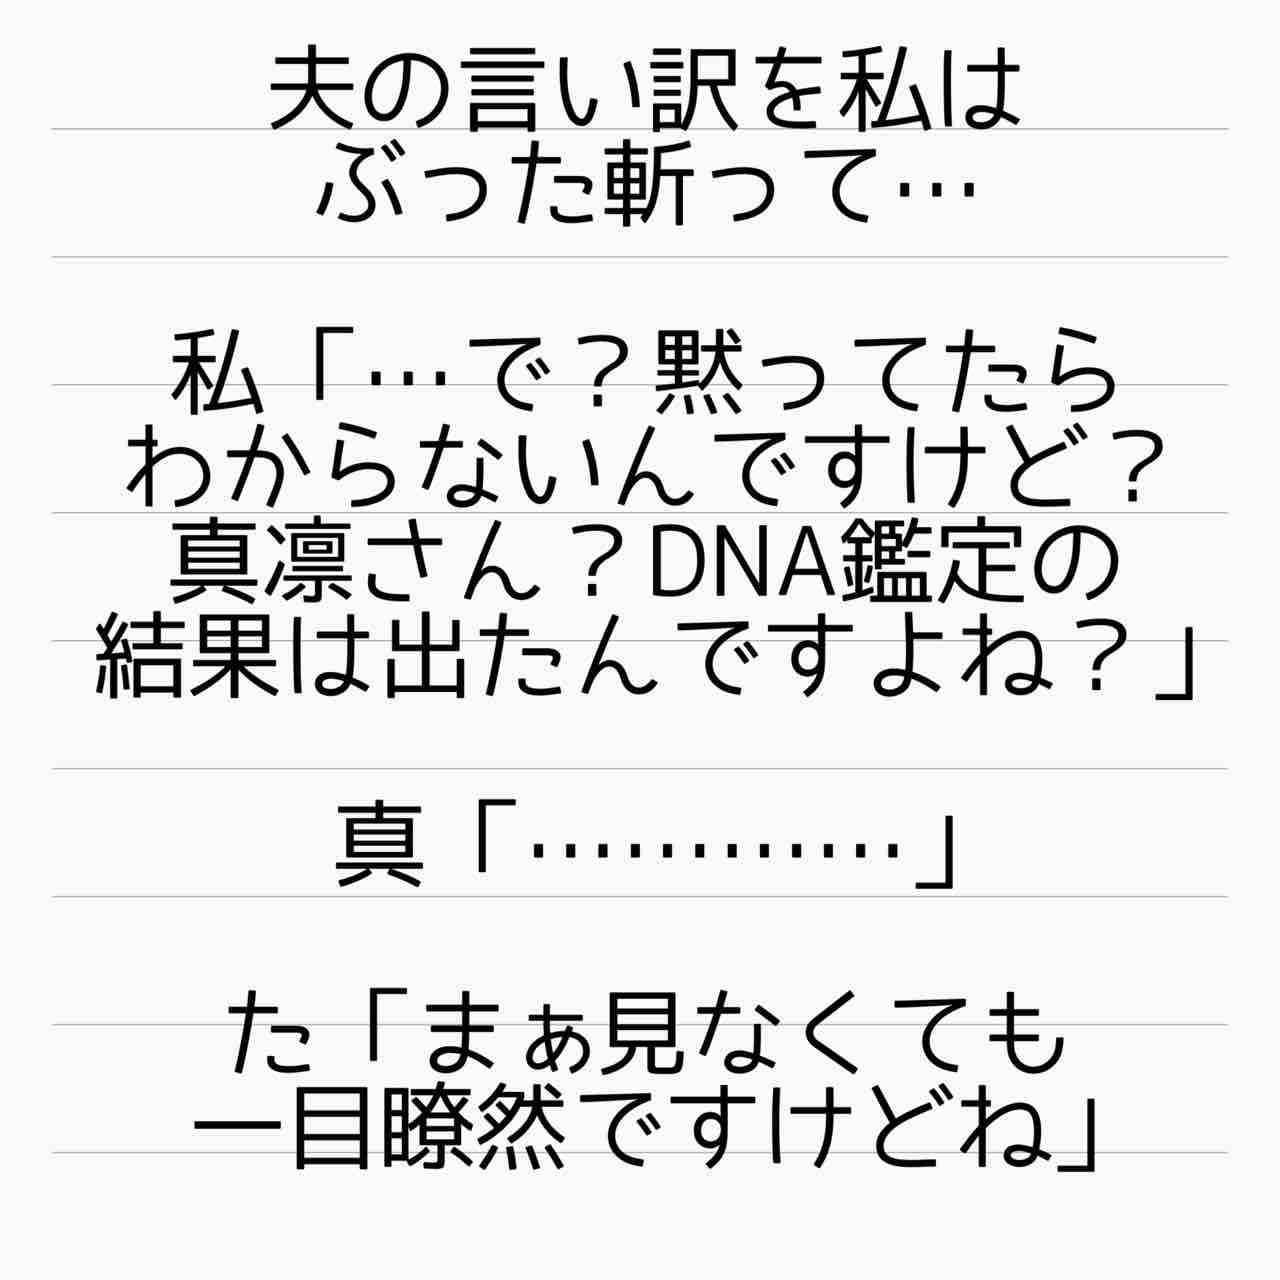 夫の言い訳を私は
ぶった斬って…
私「…で？黙ってたら
わからないんですけど？
真凛さん？DNA鑑定の
結果は出たんですよね？」
真「…………」
た「まぁ見なくても
一目瞭然ですけどね」